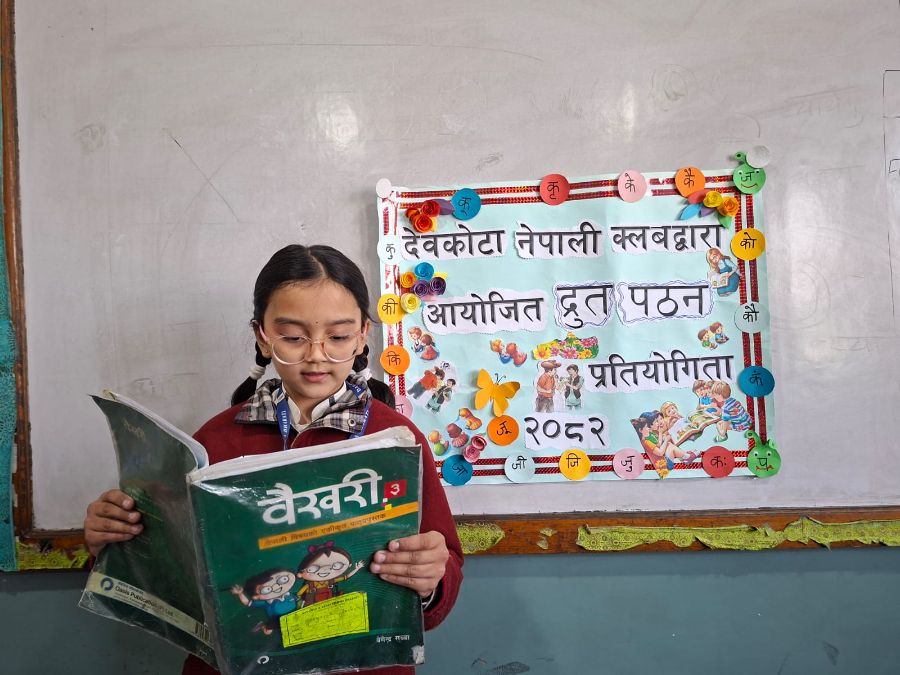 कृ
के
कै
ज
कू
देवकोटा नेपाली क्लबद्वारा
कु
को
की
आयोजित द्रुत पठन
कौ
कि
प्रतियोगिता
कं
२०८२
जी
जि
जु
कः
वैखरी ३
नेपाली विषयको एकीकृत पाठ्यपुस्तक
Oasis Publication Pvt. Ltd